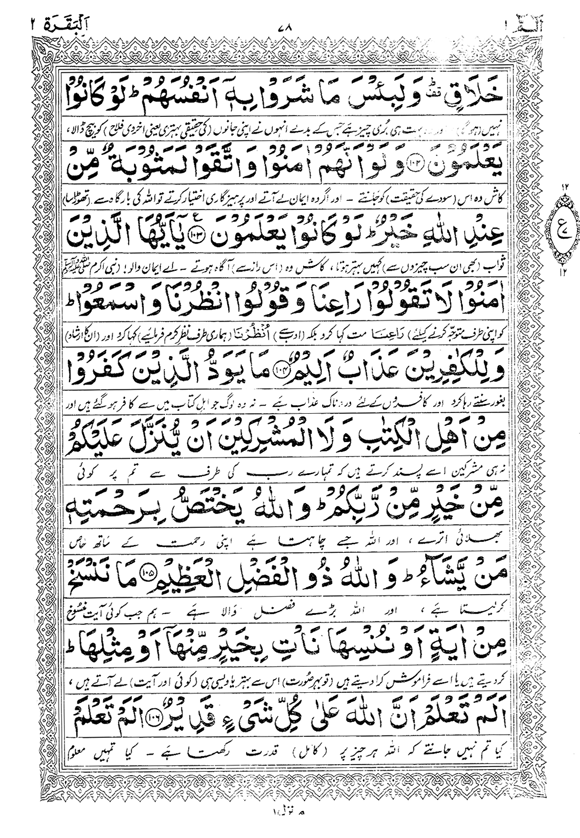 الٓمّٓ ١ ٧٨ اَلْبَقَرَة ٢
خَلَاقٍ ۛؕ وَلَبِئْسَ مَا شَرَوْا بِهٖۤ اَنْفُسَهُمْ ؕ لَوْ كَانُوْا
نہیں (ہوگا) اور بہت ہی بُری چیز ہے جس کے بدلے انہوں نے اپنی جانوں (کی حقیقی بہتری یعنی اخروی فلاح) کو بیچ ڈالا،
يَعْلَمُوْنَ ﴿۱۰۲﴾ وَلَوْ اَنَّهُمْ اٰمَنُوْا وَاتَّقَوْا لَمَثُوْبَةٌ مِّنْ
کاش وہ اس (سودے کی حقیقت) کو جانتے ۔ اور اگر وہ ایمان لے آتے اور پرہیزگاری اختیار کرتے تو اللہ کی بارگاہ سے (تھوڑا سا)
عِنْدِ اللّٰهِ خَيْرٌ ؕ لَوْ كَانُوْا يَعْلَمُوْنَ ﴿۱۰۳﴾ يٰۤاَيُّهَا الَّذِيْنَ
ثواب (بھی ان سب چیزوں سے) کہیں بہتر ہوتا، کاش وہ (اس راز سے) آگاہ ہوتے ۔ اے ایمان والو! (نبی اکرم ﷺ
اٰمَنُوْا لَا تَقُوْلُوْا رَاعِنَا وَقُوْلُوا انْظُرْنَا وَاسْمَعُوْا ؕ
کو اپنی طرف متوجہ کرنے کیلئے) رَاعِنَا مت کہا کرو بلکہ (ادب سے) اُنْظُرْنَا (ہماری طرف نظرِ کرم فرمائیے) کہا کرو اور (ان کا ارشاد)
وَلِلْكٰفِرِيْنَ عَذَابٌ اَلِيْمٌ ﴿۱۰۴﴾ مَا يَوَدُّ الَّذِيْنَ كَفَرُوْا
بغور سنتے رہا کرو اور کافروں کے لئے دردناک عذاب ہے ۔ نہ وہ لوگ جو اہلِ کتاب میں سے کافر ہو گئے ہیں اور
مِنْ اَهْلِ الْكِتٰبِ وَلَا الْمُشْرِكِيْنَ اَنْ يُّنَزَّلَ عَلَيْكُمْ
نہ ہی مشرکین اسے پسند کرتے ہیں کہ تمہارے رب کی طرف سے تم پر کوئی
مِّنْ خَيْرٍ مِّنْ رَّبِّكُمْ ؕ وَاللّٰهُ يَخْتَصُّ بِرَحْمَتِهٖ
بھلائی اترے، اور اللہ جسے چاہتا ہے اپنی رحمت کے ساتھ خاص
مَنْ يَّشَآءُ ؕ وَاللّٰهُ ذُو الْفَضْلِ الْعَظِيْمِ ﴿۱۰۵﴾ مَا نَنْسَخْ
کر لیتا ہے، اور اللہ بڑے فضل والا ہے ۔ ہم جب کوئی آیت منسوخ
مِنْ اٰيَةٍ اَوْ نُنْسِهَا نَاْتِ بِخَيْرٍ مِّنْهَاۤ اَوْ مِثْلِهَا ؕ
کر دیتے ہیں یا اسے فراموش کرا دیتے ہیں (تو بہرصورت) اس سے بہتر یا ویسی ہی (کوئی اور آیت) لے آتے ہیں،
اَلَمْ تَعْلَمْ اَنَّ اللّٰهَ عَلٰى كُلِّ شَىْءٍ قَدِيْرٌ ﴿۱۰۶﴾ اَلَمْ تَعْلَمْ
کیا تم نہیں جانتے کہ اللہ ہر چیز پر (کامل) قدرت رکھتا ہے ۔ کیا تمہیں معلوم
منزل ١
١٢
ع
١٢